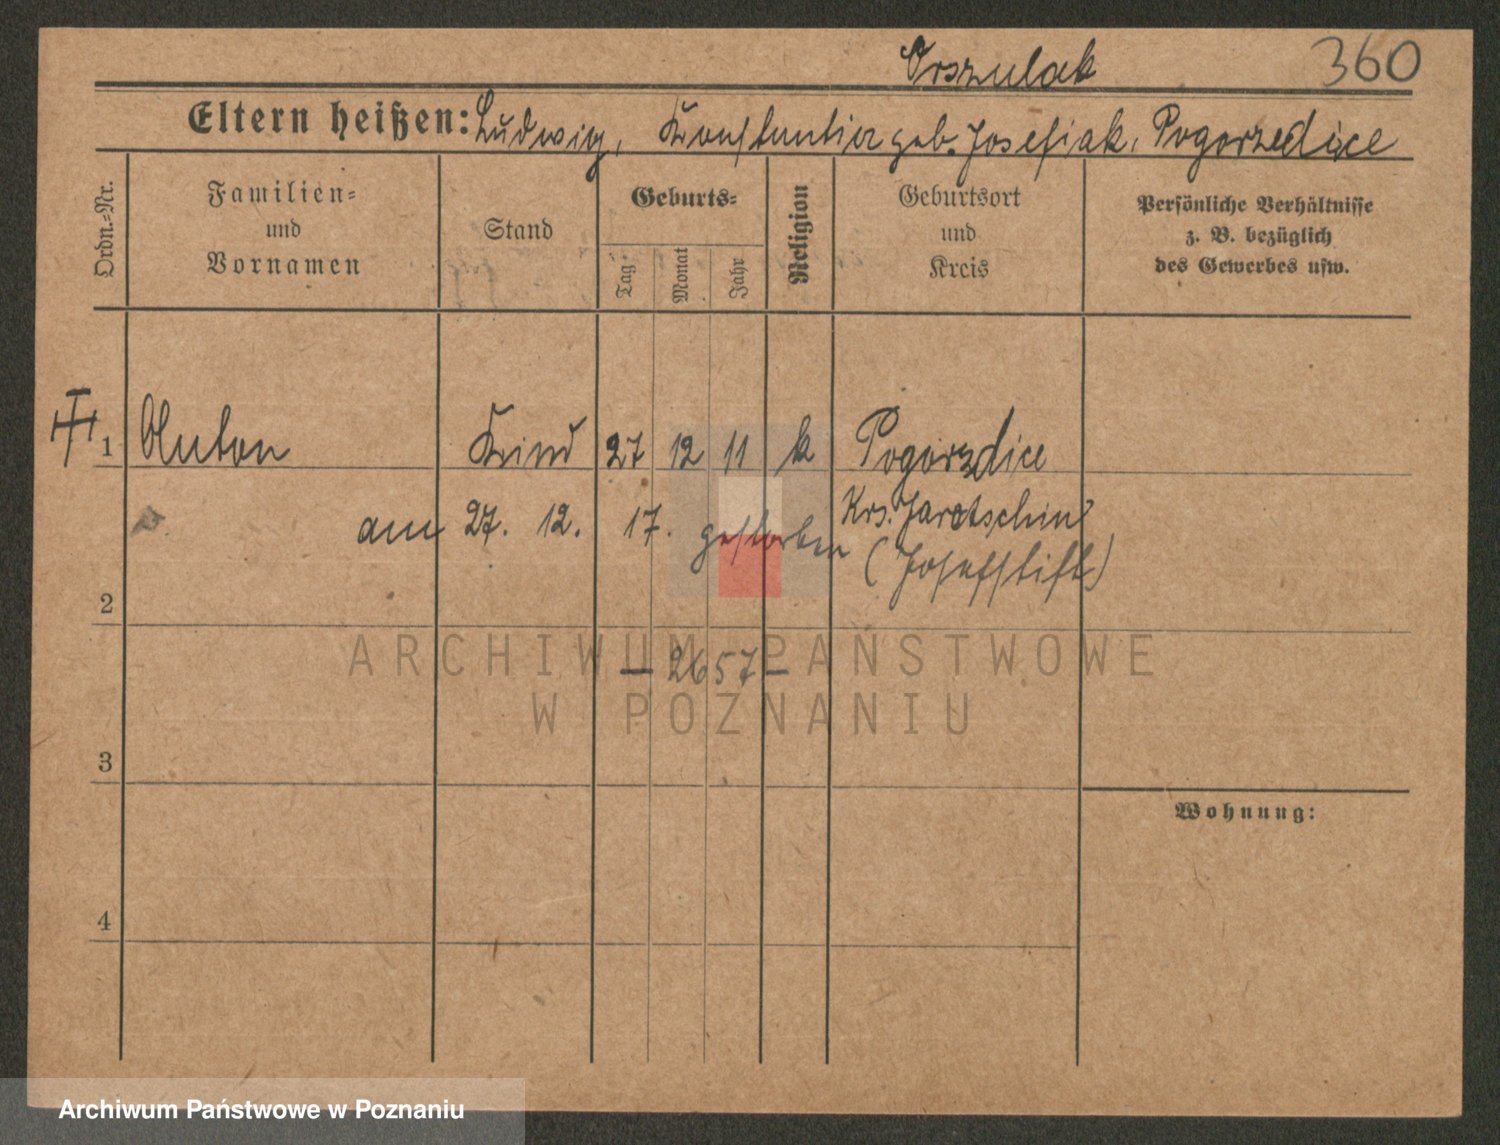 Orszulak 360
Eltern heißen: Ludwig, Konstantia geb. Josefiak, Pogorzedice
Ordn.=Nr.
Familien=
und
Vornamen
Stand
Geburts=
Tag
Monat
Jahr
Religion
Geburtsort
und
Kreis
Persönliche Verhältnisse
z. B. bezüglich
des Gewerbes usw.
1 Anton Kind 27 12 11 k Pogorzdice
am 27. 12. 17. gestorben Krs. Jarotschin
(Josefstift)
2
— 2657 —
3
Wohnung:
4
ARCHIWUM PAŃSTWOWE
W POZNANIU
Archiwum Państwowe w Poznaniu